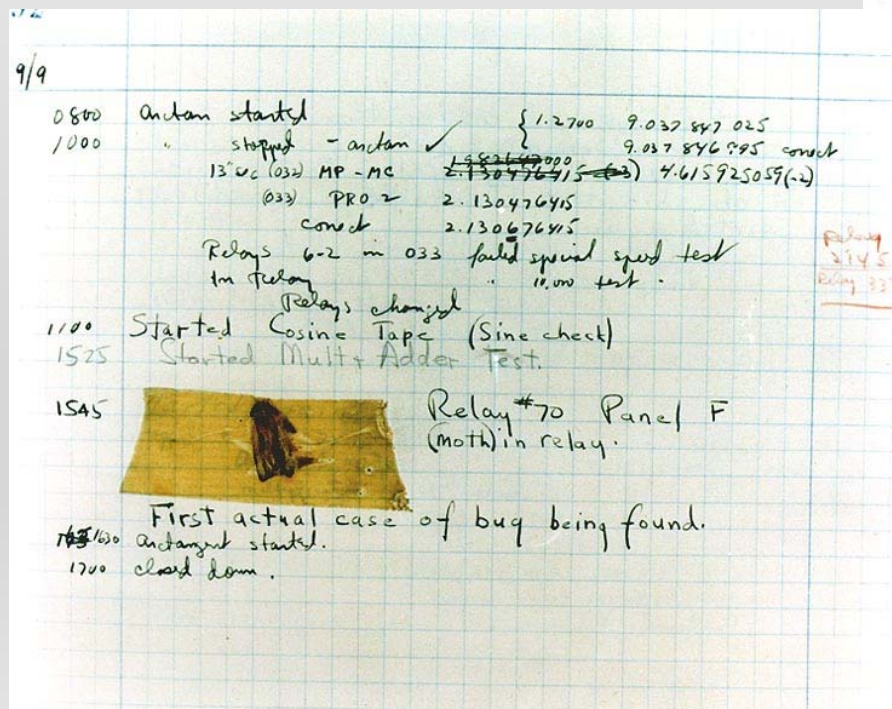 9/9
0800 arctan started { 1.2700 9.037 847 025
1000 " stopped - arctan ✓ 9.037 846 795 correct
13" uc (032) MP - MC 2.130476415 (-3) 4.615925059(-2)
(033) PRO 2 2.130476415
correct 2.130676415
Relays 6-2 in 033 failed special speed test
In Relay " 10.000 test .
Relays changed
1100 Started Cosine Tape (Sine check)
1525 Started Mult + Adder Test.
1545 Relay #70 Panel F
(moth) in relay.
First actual case of bug being found.
1630 arctangent started.
1700 closed down .
Relay
2145
Relay 337